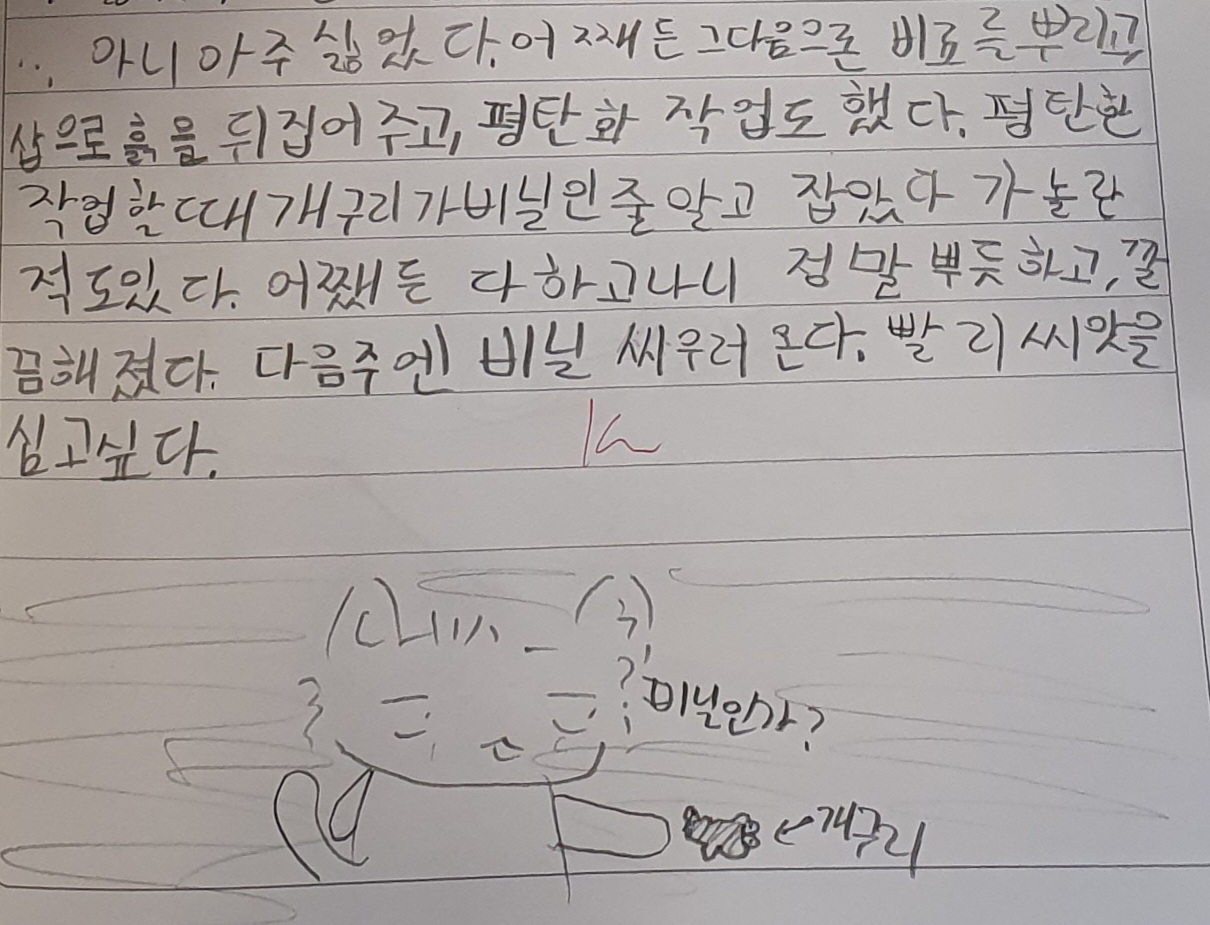 ... 아니 아주 싫었다. 어째든 그다음으론 비료를 뿌리고,
삽으로 흙을 뒤집어 주고, 평탄화 작업도 했다. 평탄환
작업할때 개구리가 비닐인 줄 알고 잡았다가 놀란
적도있다. 어쨌든 다 하고나니 정말 뿌듯하고, 깔
끔해졌다. 다음주엔 비닐 씌우러 온다. 빨리 씨앗을
심고싶다.
비닐인가?
←개구리